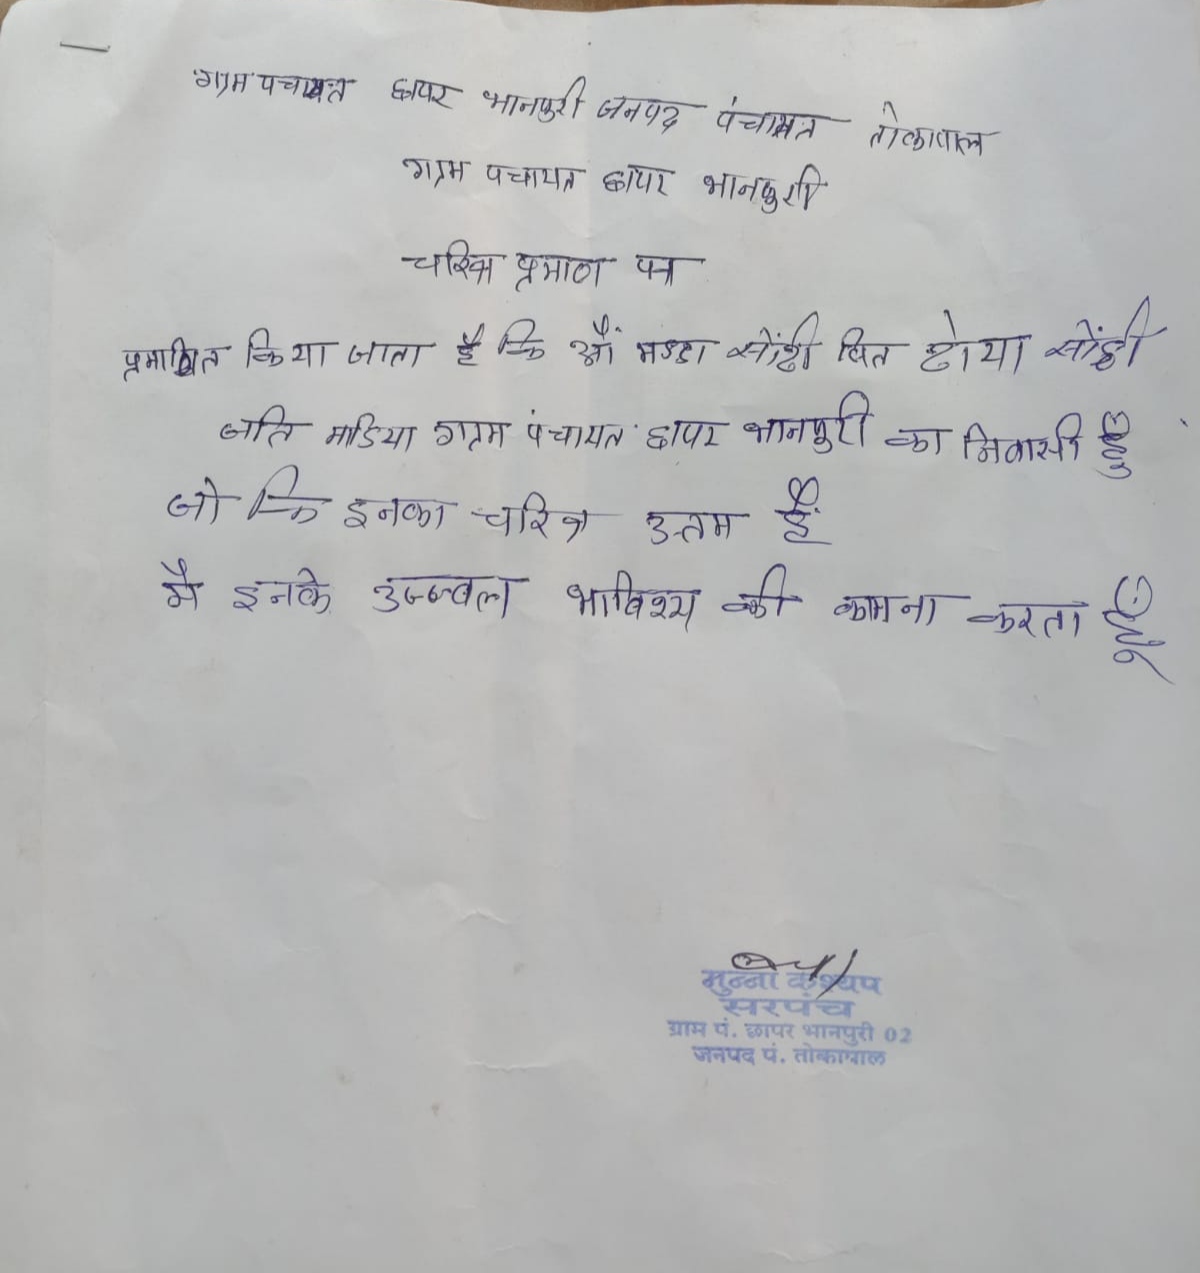 ग्राम पचायत छापर भानपुरी जनपद पंचायत तोकापाल
ग्राम पचायत छापर भानपुरी
चरित्र प्रमाण पत्र
प्रमाणित किया जाता है कि श्री मण्डा सोढ़ी पित ढोया सोढ़ी
जाति माडिया ग्राम पंचायत छापर भानपुरी का निवासी हुँ
जो कि इनका चरित्र उत्तम हैं
मै इनके उज्ज्वल भाविश्य की कामना करता हूँ
मुन्ना कश्यप
सरपंच
ग्राम पं. छापर भानपुरी 02
जनपद पं. तोकापाल